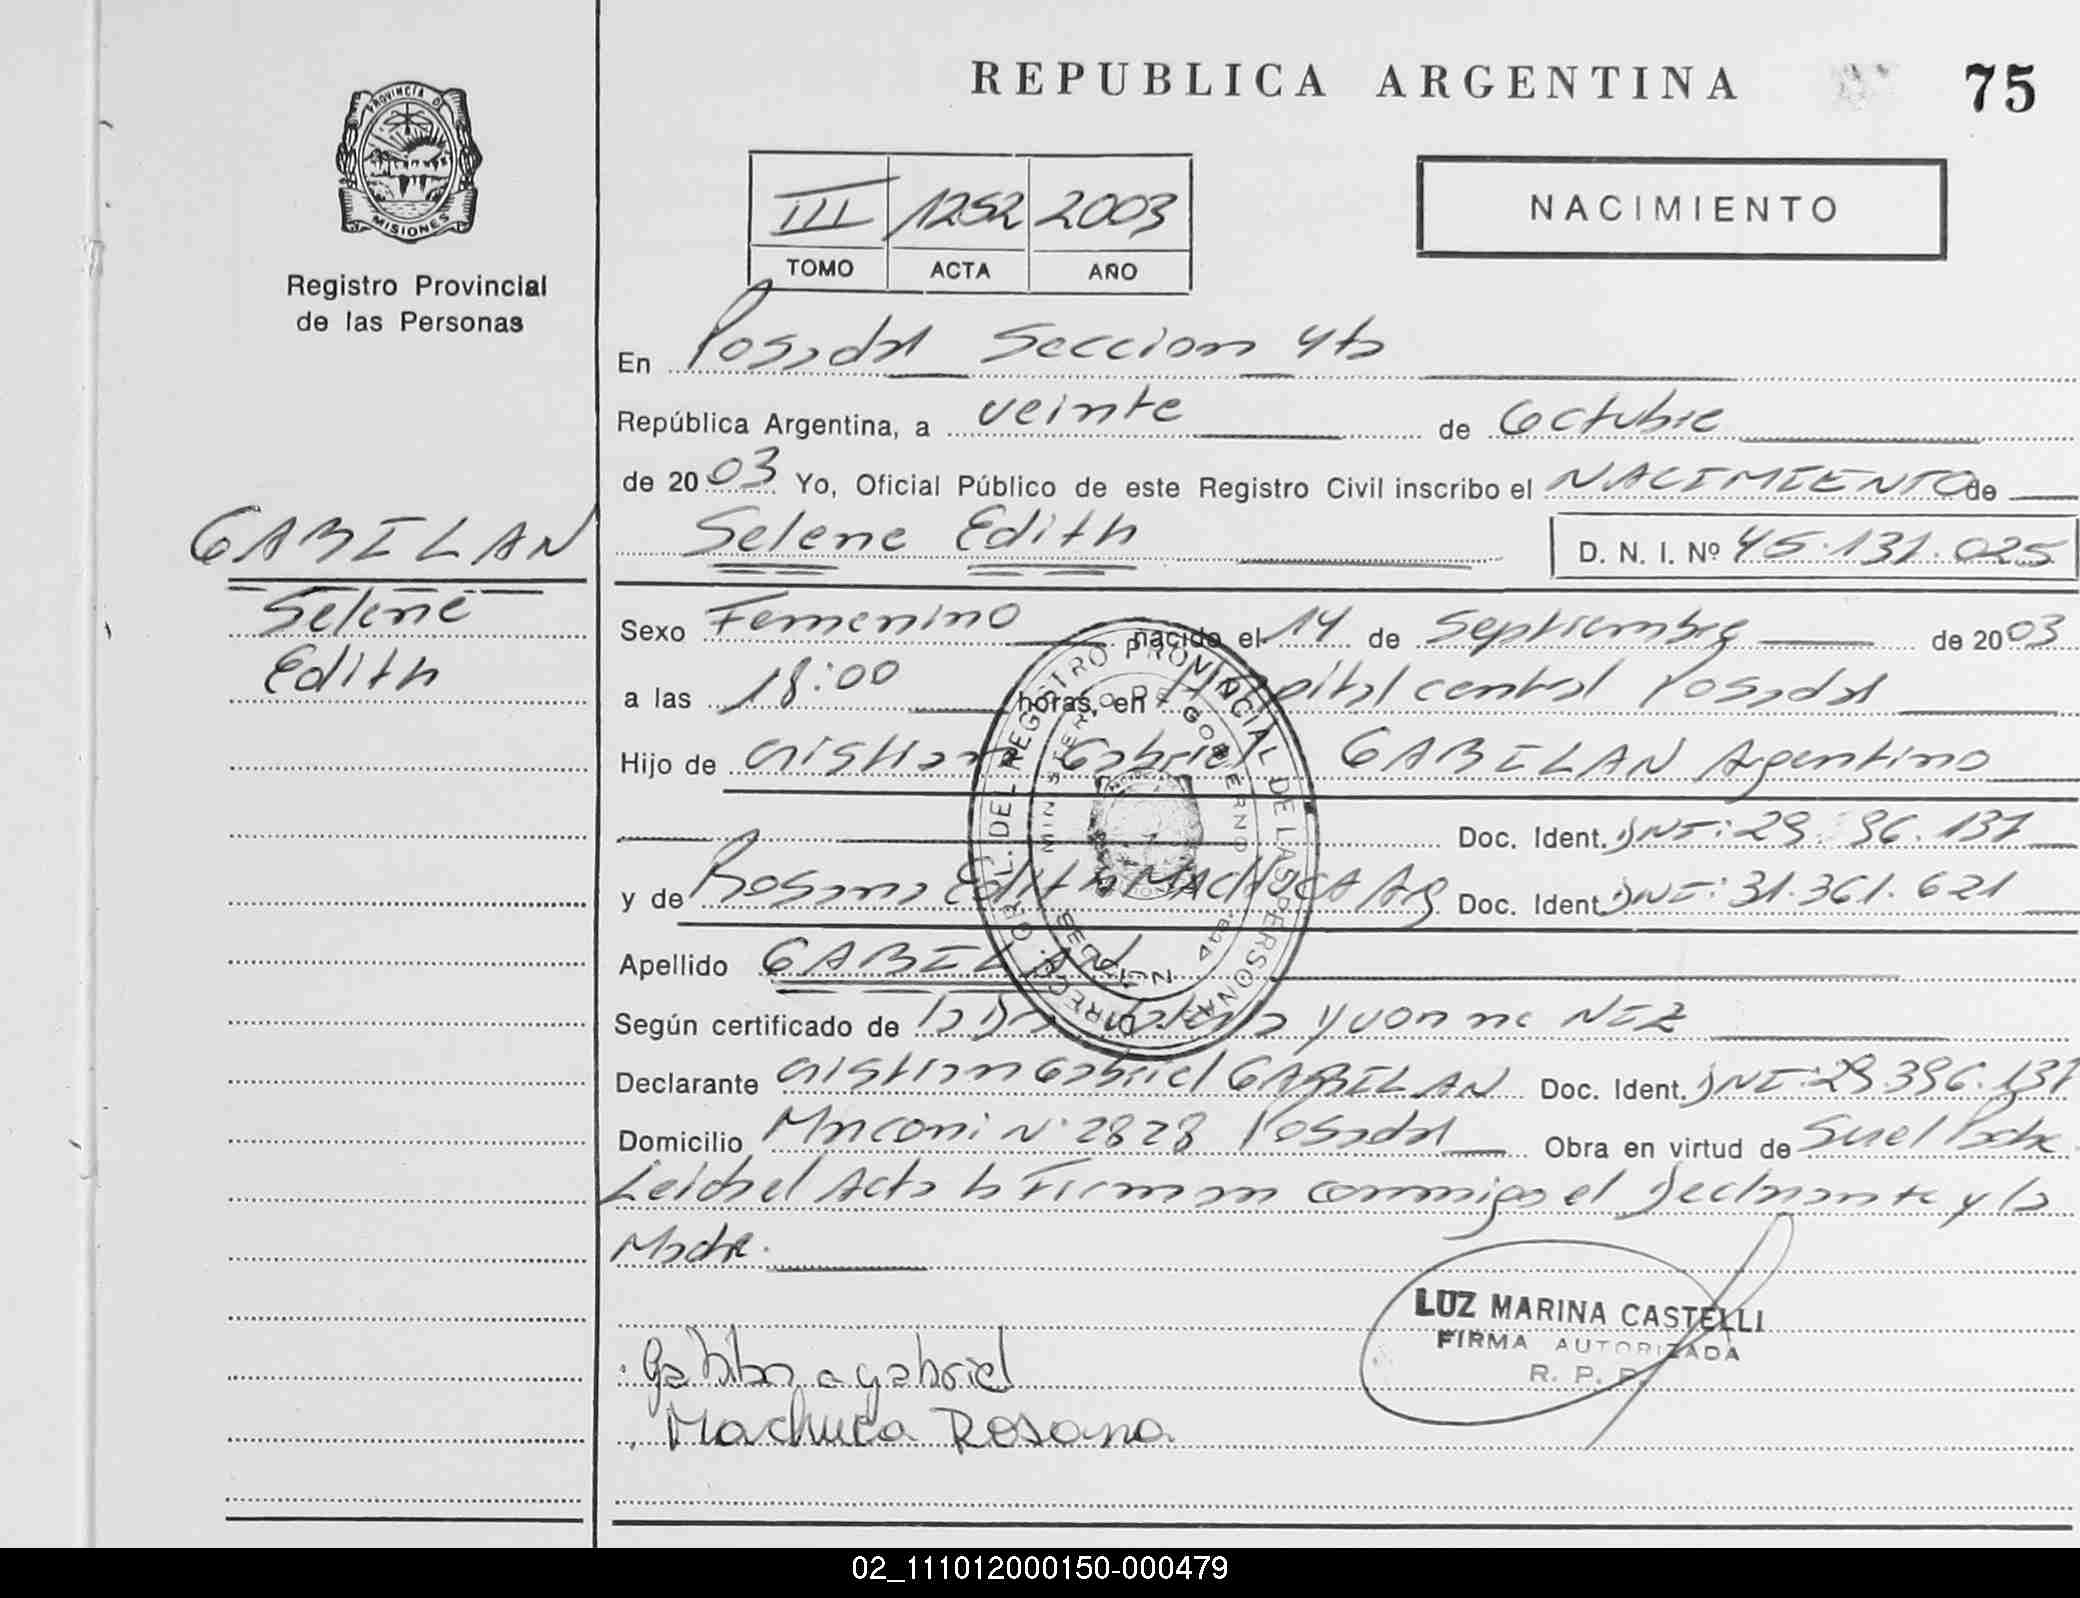 REPUBLICA ARGENTINA
75
PROVINCIA DE
MISIONES
Registro Provincial
de las Personas
III 1252 2003
TOMO ACTA AÑO
NACIMIENTO
En Posadas Seccion 4ta
República Argentina, a veinte de Octubre
de 2003 Yo, Oficial Público de este Registro Civil inscribo el NACIMIENTO de
Selene Edith D. N. I. Nº 45.131.025
GABILAN
Selene
Edith
Sexo Femenino nacido el 14 de Septiembre de 2003
a las 18:00 horas, en Hospital central Posadas
Hijo de Cristian Gabriel GABILAN Argentino
Doc. Ident. DNI: 29. 96.137
y de Rosana Edith MACHUCA Arg Doc. Ident. DNI: 31.361.621
Apellido GABILAN
Según certificado de la Dra Yvonne NIZ
Declarante Cristian Gabriel GABILAN Doc. Ident. DNI: 29.396.137
Domicilio Marconi Nº 2828 Posadas Obra en virtud de Ser el Padre
Leida el Acta la Firman conmigo el Declarante y la
Madre.
DIRECC. GRAL. DEL REGISTRO PROVINCIAL DE LAS PERSONAS
MINISTERIO DE GOBIERNO
LUZ MARINA CASTELLI
FIRMA AUTORIZADA
R. P. P.
gabriel
Machuca Rosana
02_111012000150-000479